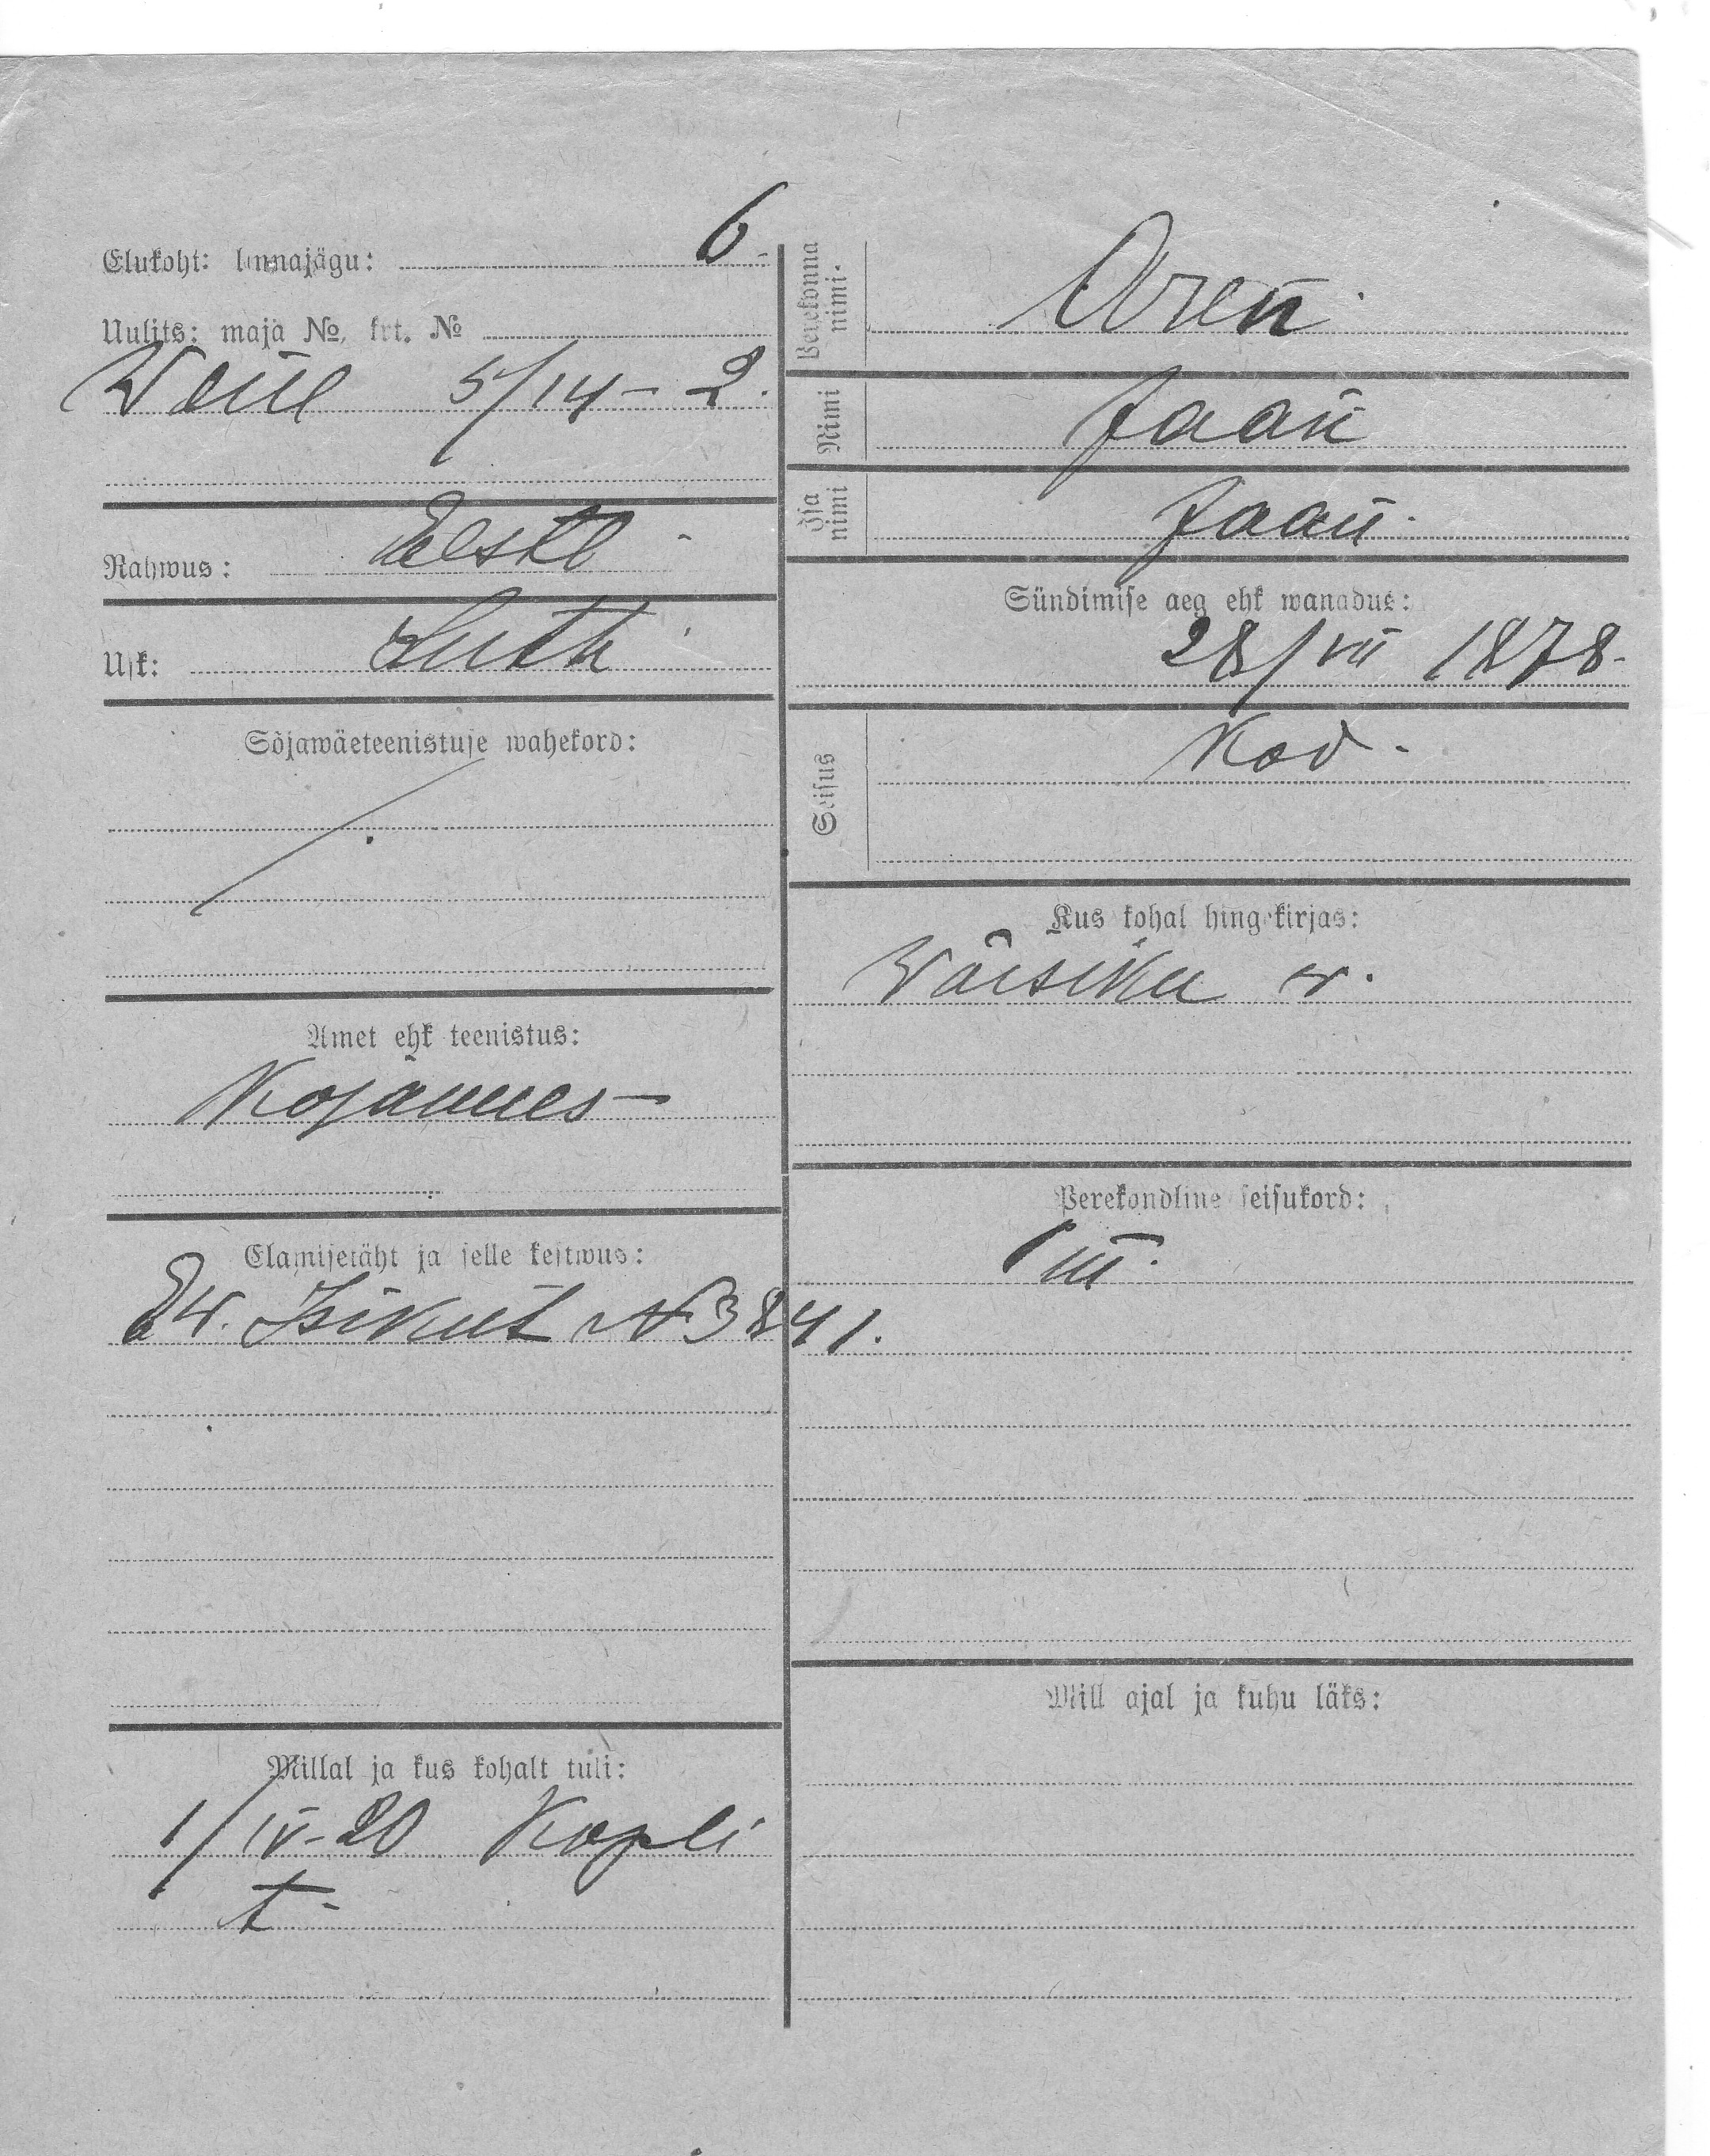 Elukoht: linnajagu: 6
Uulits: maja No, krt. No
Wene 5/14 – 2.
Rahwus: Eesti
Usk: Luth
Sõjawäeteenistuse wahekord:
Amet ehk teenistus:
Kojamees
Elamisetäht ja selle kestwus:
Isikut N 3841.
Millal ja kus kohalt tuli:
1/IV-20 Kopli
t.
Perekonna nimi. Oren
Nimi Jaan
Isa nimi Jaan
Sündimise aeg ehk wanadus:
28/VII 1878.
Seisus Kod.
Kus kohal hingekirjas:
Waisiku w.
Perekondline seisukord:
Mill ajal ja kuhu läks: